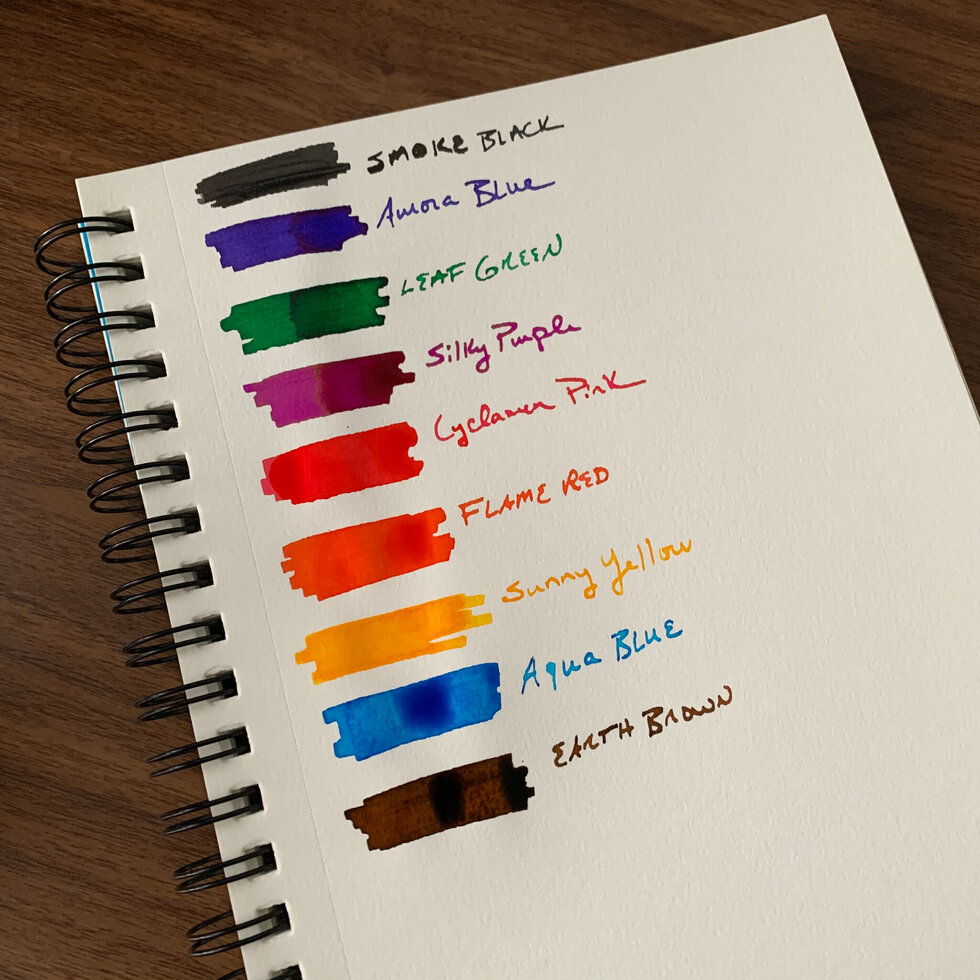 SMOKE BLACK
Aurora Blue
LEAF GREEN
Silky Purple
Cyclamen Pink
FLAME RED
Sunny Yellow
Aqua BLUE
EARTH BROWN